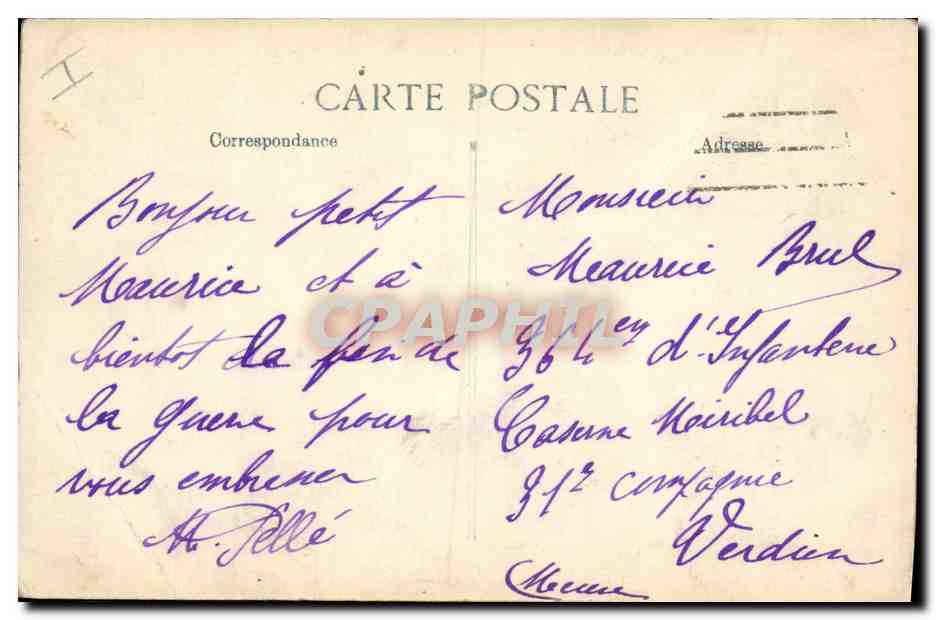 CARTE POSTALE
Correspondance
Bonjour petit
Maurice et à
bientot la fin de
la guerre pour
vous embrasser
M. Pellé
Adresse
Monsieur
Maurice Brul
364em d'Infanterie
Caserne Miribel
31e Compagnie
Verdun
(Meuse
CPAPHIL